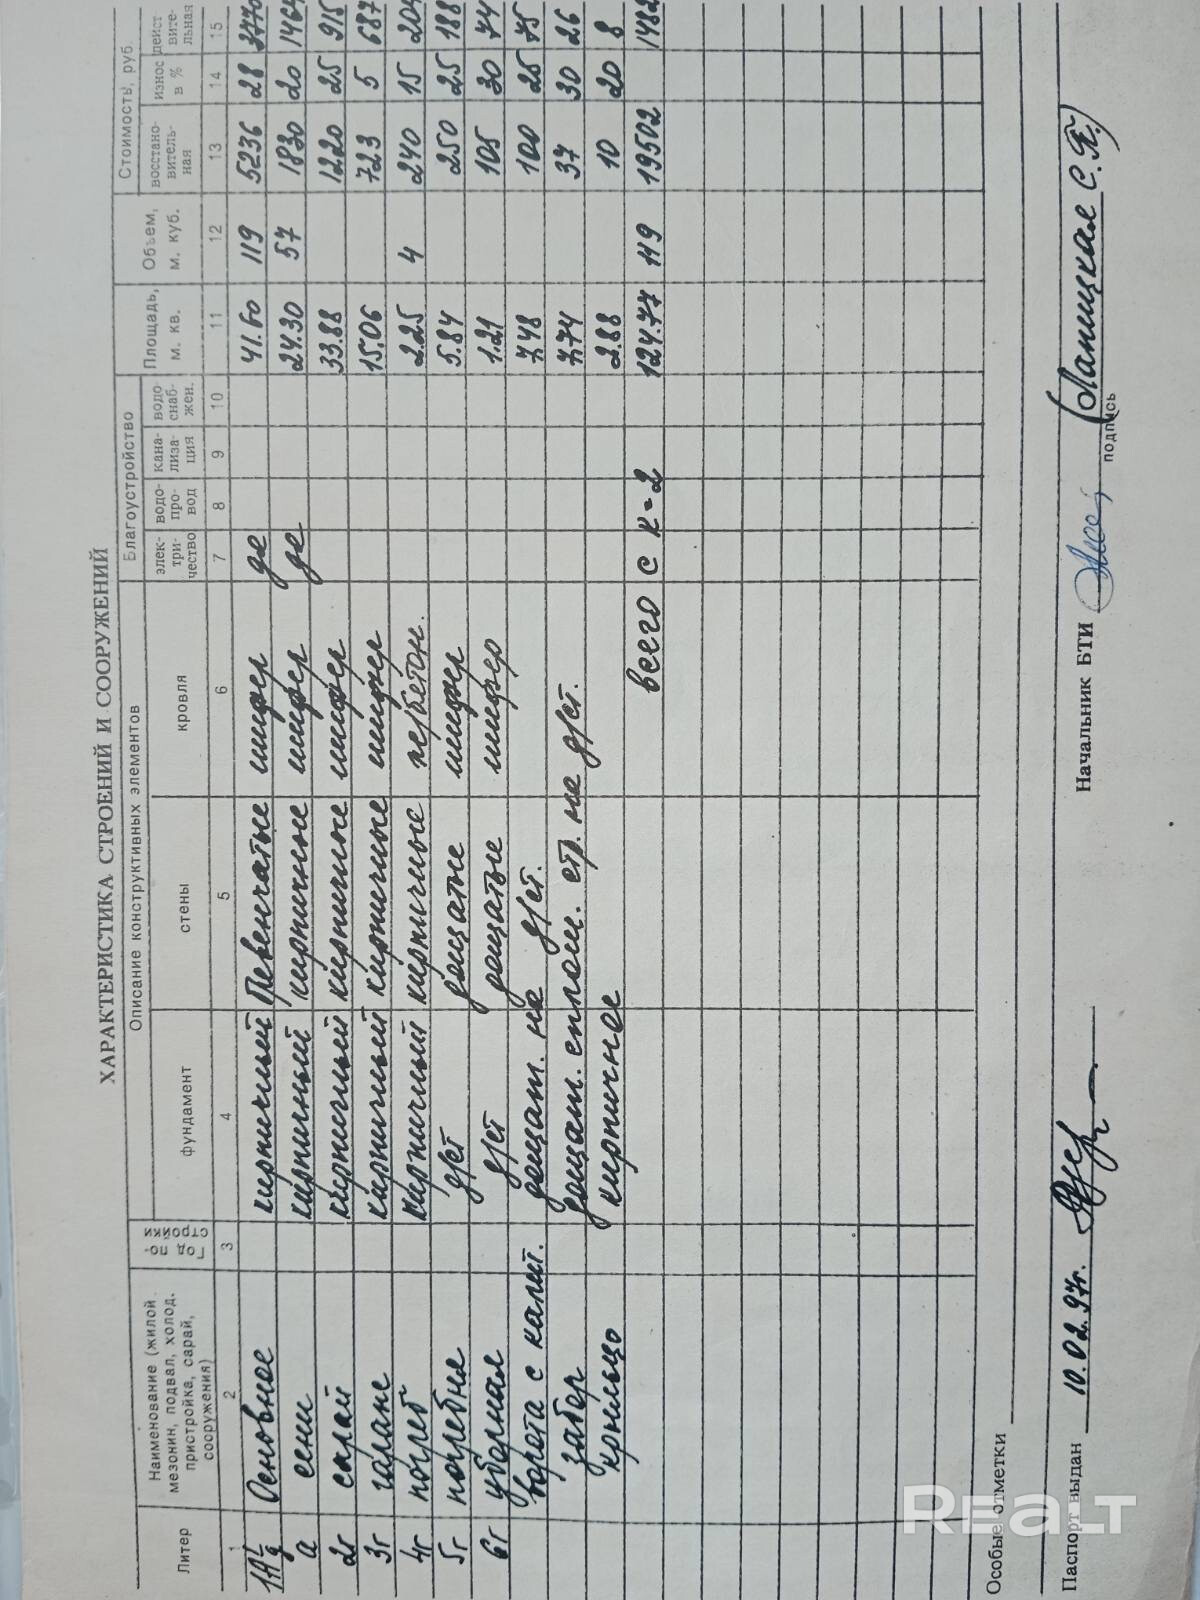 ХАРАКТЕРИСТИКА СТРОЕНИЙ И СООРУЖЕНИЙ
Литер
Наименование (жилой мезонин, подвал, холод. пристройка, сарай, сооружения)
Год по-стройки
Описание конструктивных элементов
фундамент стены кровля
Благоустройство
элек-три-чество водо-про-вод кана-лиза-ция водо-снаб-жен.
Площадь, м. кв.
Объем, м. куб.
Стоимость, руб.
восстано-витель-ная износ в % дейст вите-льная
1 2 3 4 5 6 7 8 9 10 11 12 13 14 15
Основное кирпичный шифер де 41.60 119 5236 28 3770
а сени кирпичный кирпичные шифер де 24.30 57 1830 20 1464
2г сарай кирпичный кирпичные шифер 33.88 1220 25 915
3г гараж кирпичный кирпичные шифер 15.06 723 5 687
4г погреб кирпичный кирпичные ж/бетон. 2.25 4 240 15 204
5г погребня д/ст дощатые шифер 5.84 250 25 188
6г уборная д/ст дощатые шифер 1.21 105 30 74
ворота с калит. дощат. на д/ст. 7.48 100 25 75
забор дощат. сплош. стр. на д/ст. 7.74 37 30 26
крыльцо кирпичное 2.88 10 20 8
всего с к=2 124.77 119 19502 1482
Особые отметки
Паспорт выдан 10.02.97г. Начальник БТИ
подпись
REALT